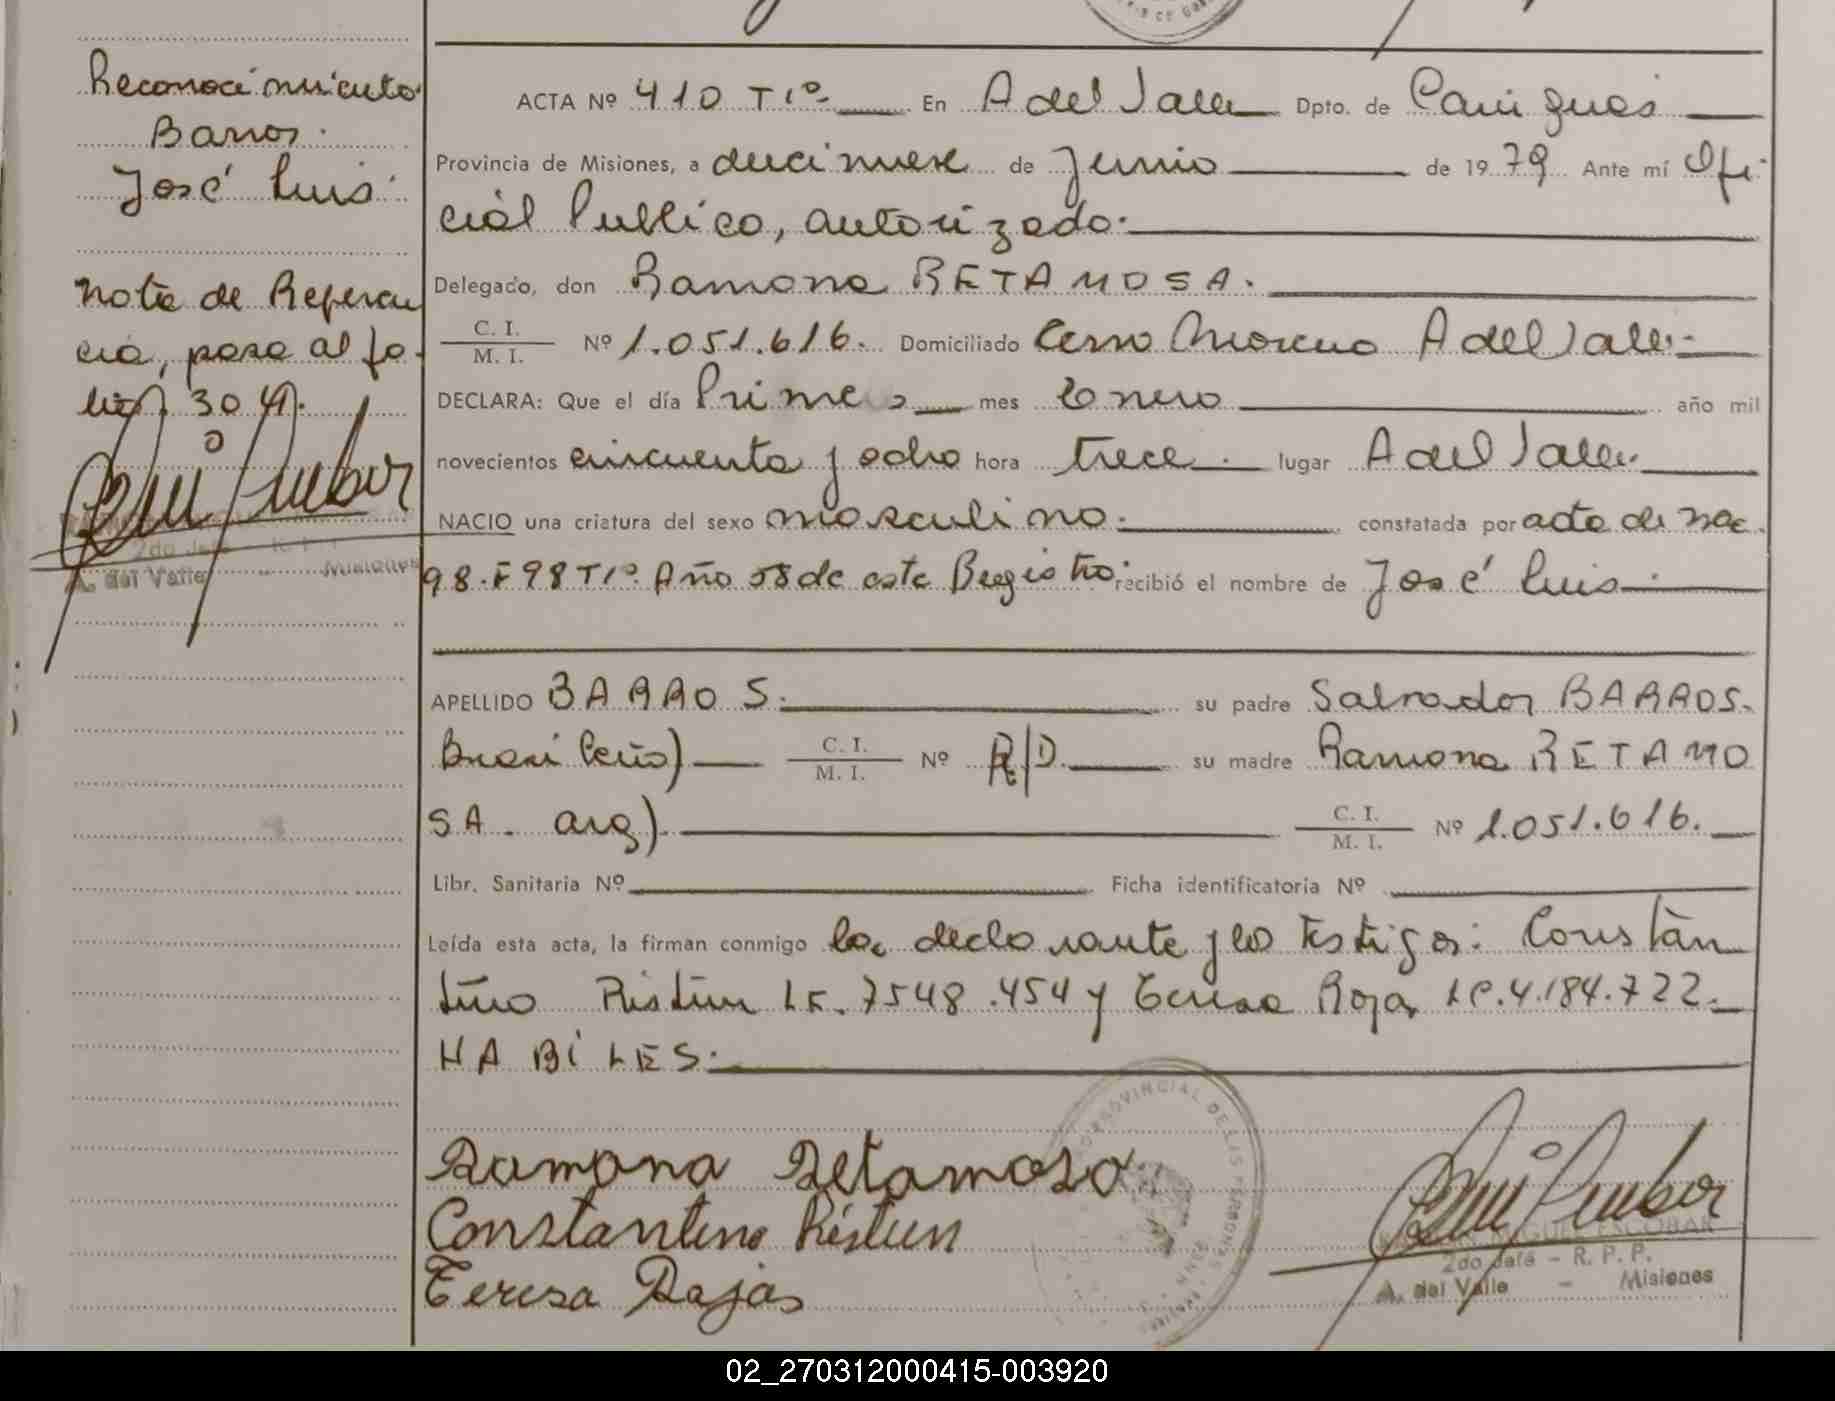 Reconocimiento
Barros.
José Luis.
Nota de Referen
cia, pasa al fo-
lio, 304.
2do Jefe
A. del Valle - Misiones
ACTA Nº 410 Tº1º. En A del Valle Dpto. de Cainguás
Provincia de Misiones, a diecinueve de Junio de 1979 Ante mí Ofi-
cial Publico, autorizado.
Delegado, don Ramona RETAMOSA.
C. I.
M. I. Nº 1.051.616. Domiciliado Cerro Moreno A del Valle.
DECLARA: Que el día Primero mes Enero año mil
novecientos cincuenta y ocho hora trece. lugar A del Valle.
NACIO una criatura del sexo masculino. constatada por acta de nac.
98. F 98 T1º. Año 58 de este Registro. recibió el nombre de José Luis.
APELLIDO BARROS. su padre Salvador BARROS.
Brasileño) C. I.
M. I. Nº R/D. su madre Ramona RETAMO
SA. arg) C. I.
M. I. Nº 1.051.616.
Libr. Sanitaria Nº Ficha identificatoria Nº
Leída esta acta, la firman conmigo la declarante y los testigos: Constan
tino Ristun LE. 7548.454 y Teresa Rojas LC. 4.184.722.
HABILES.
Ramona Retamosa
Constantino Ristun
Teresa Rojas
PROVINCIAL DE LAS PERSONAS
MIGUEL ESCOBAR
2do Jefe - R. P. P.
A. del Valle - Misiones
02_270312000415-003920